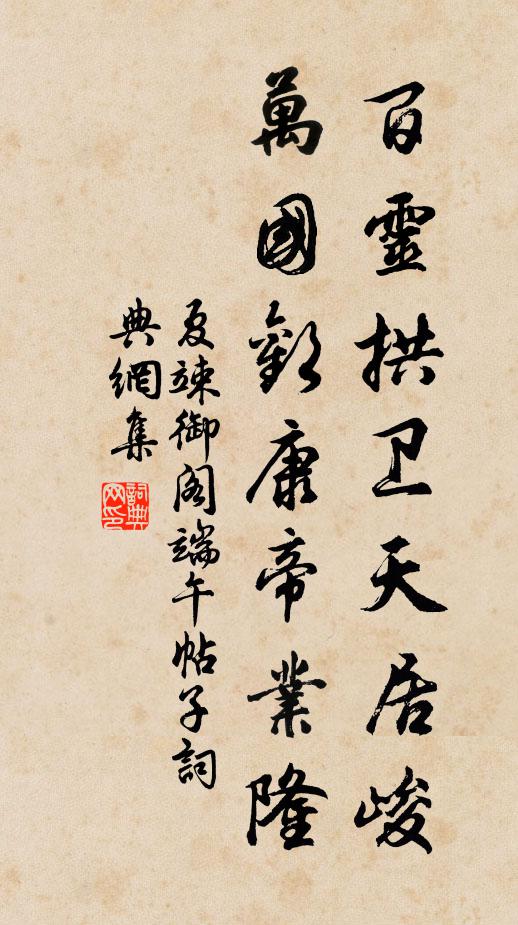 百靈拱卫天居峻
萬國歡康帝業隆
夏竦御阁端午帖子詞
典網集
詞典网印